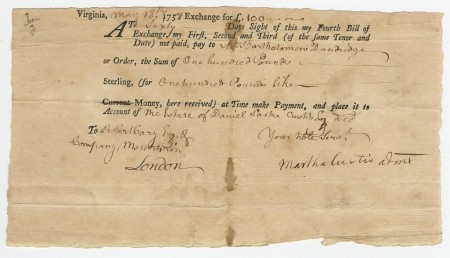 Virginia, May 18th 1758 Exchange for £.100
AT Sixty Days Sight of this my Fourth Bill of
Exchange, my First, Second and Third (of the same Tenor and
Date) not paid, pay to Mr. Bartholomew Dandridge
or Order, the Sum of One hundred Pounds
Sterling, (for One hundred Pounds like
Current Money, here received) at Time make Payment, and place it to
Account of the Estate of Daniel Parke Custis Esq Dec'd
To Robert Cary Esq. &
Your Serv.
Company, Merch
London
Martha Custis admt